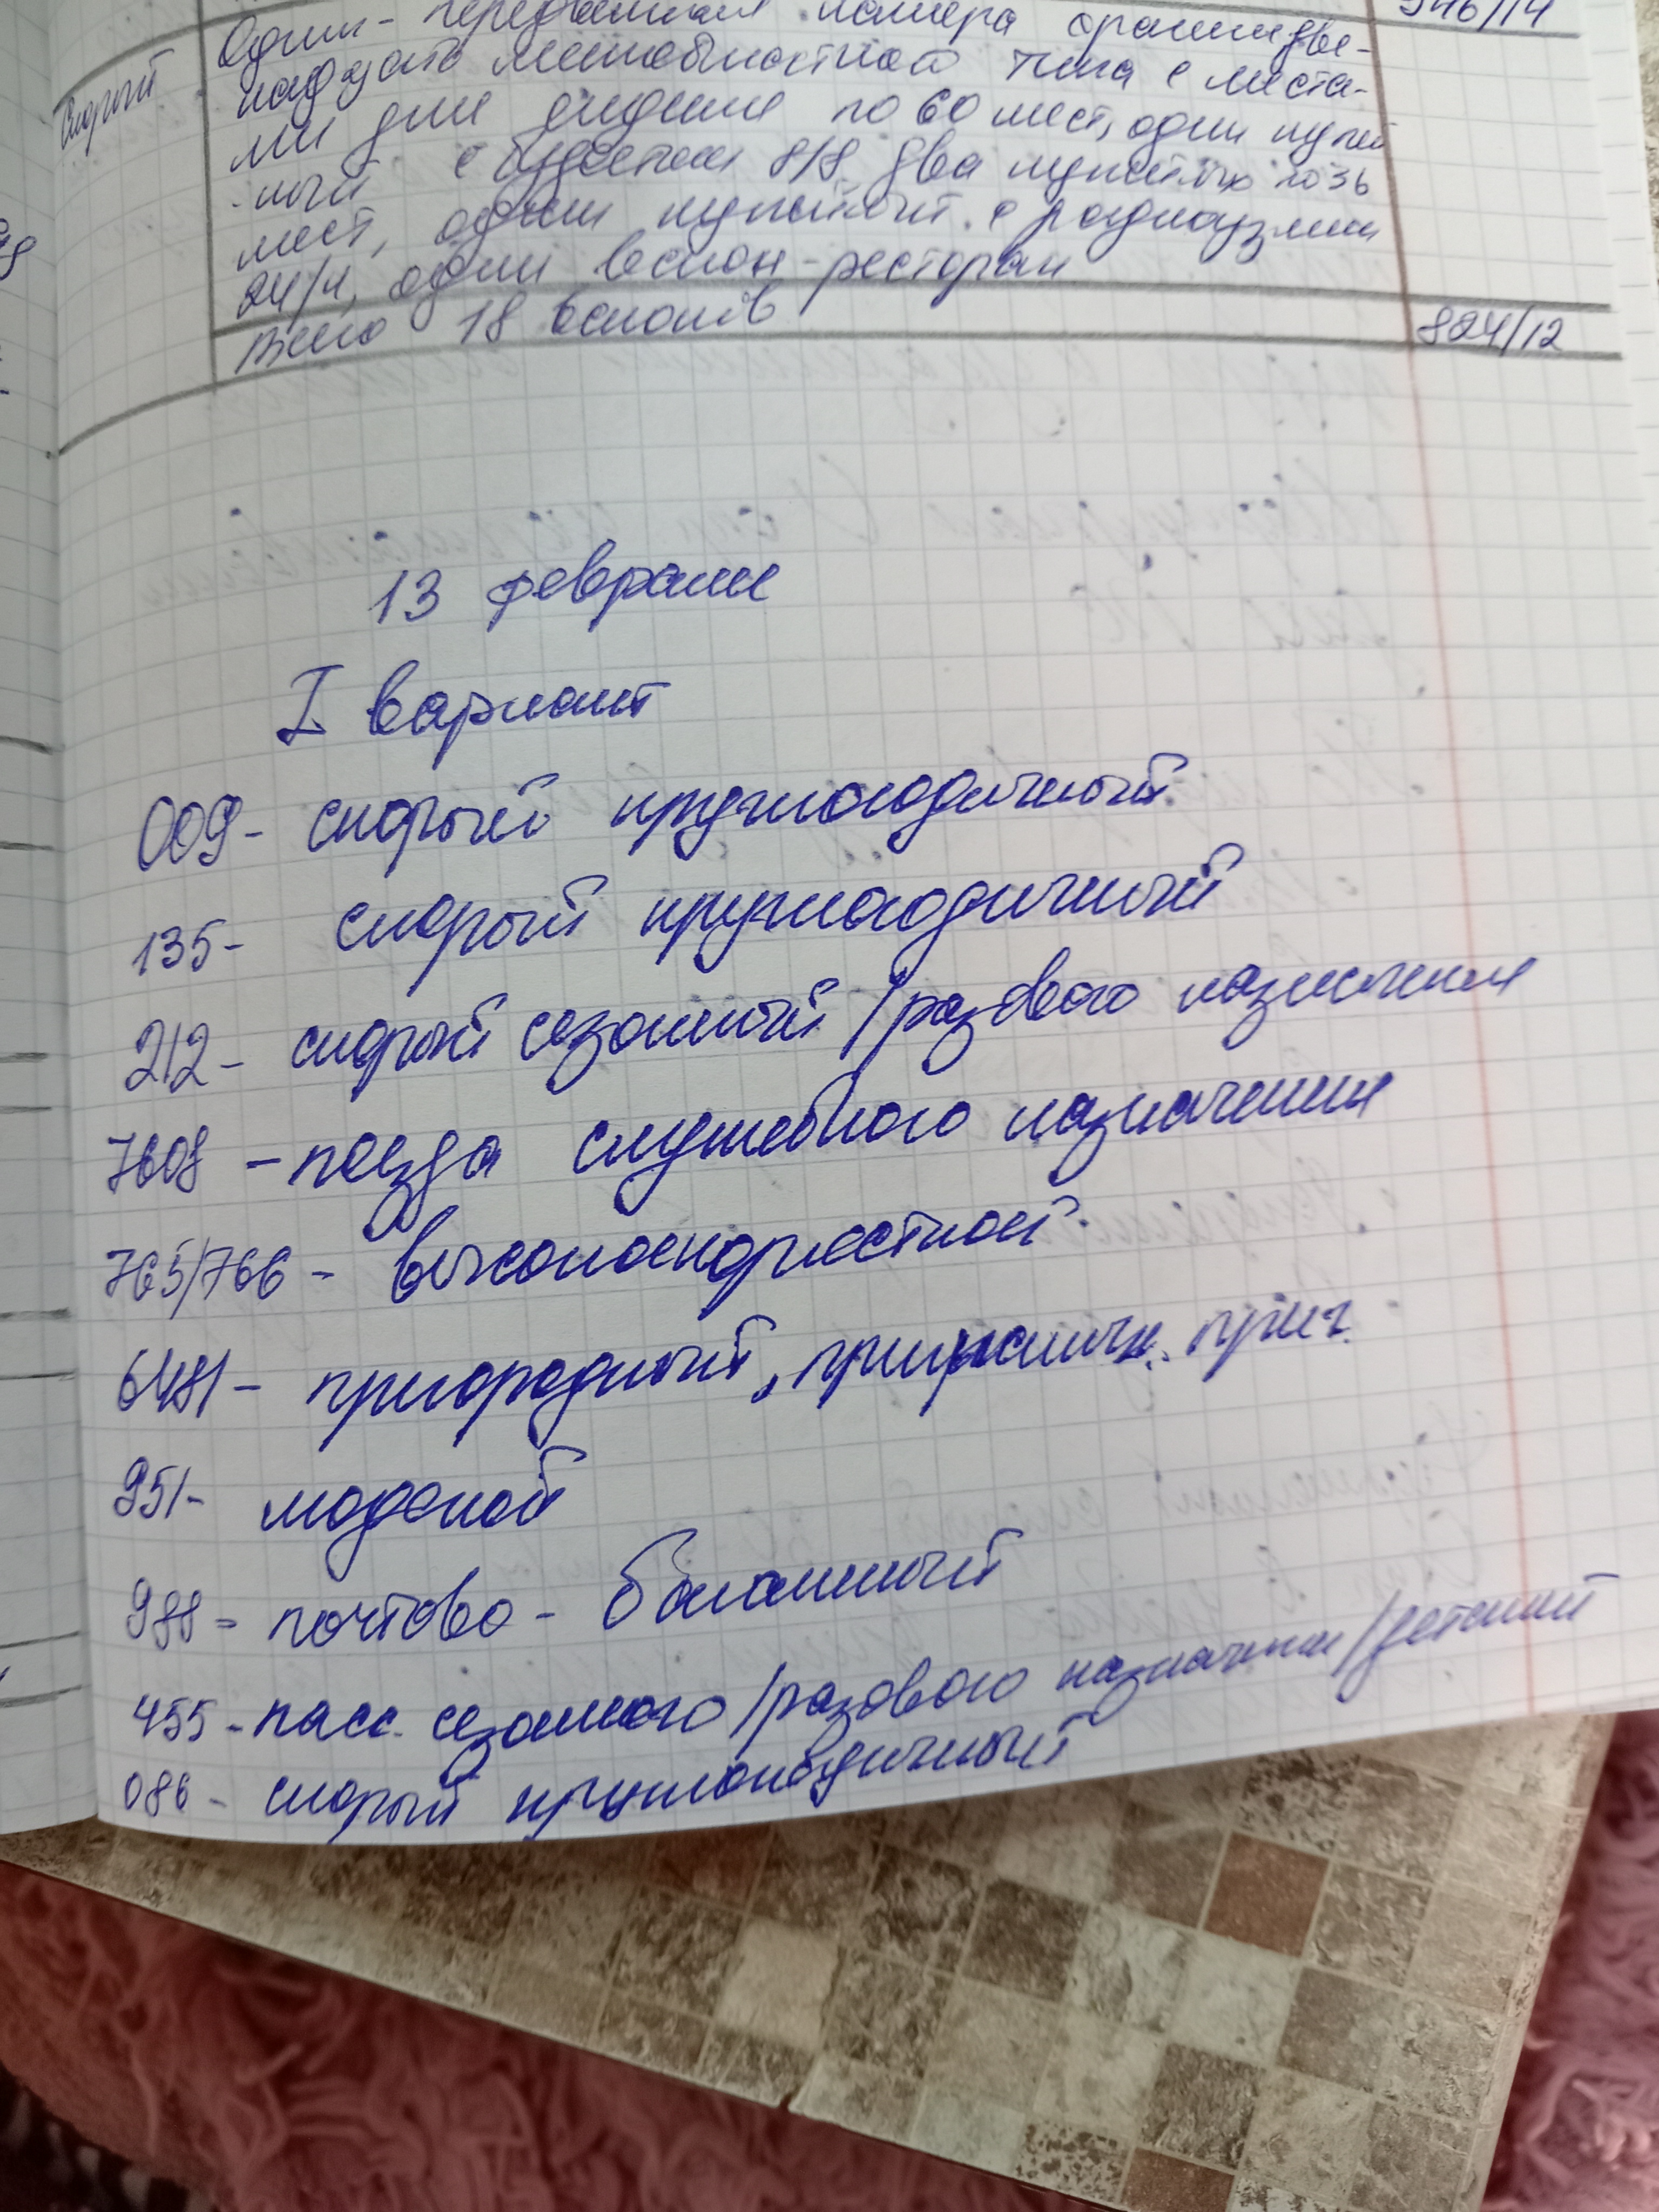 946/14
Скорый
Один - передвижная камера хранения, две-
надцать межобластного типа с места-
ми для сидения по 60 мест, один купей
-ный с буфетом 8/8, два купейных по 36
мест, один купейный с радиоузлом
24/4, один вагон-ресторан
Всего 18 вагонов
824/12
13 февраля
I вариант
009- скорый круглогодичный
135- скорый круглогодичный
212- скорый сезонный/разового назначения
7608 - поезда служебного назначения
765/766 - высокоскоростной
6481- пригородный, приг.
951- 
988- почтово-багажный
455-пасс. сезонного/разового назначения/детский
086- скорый круглогодичный